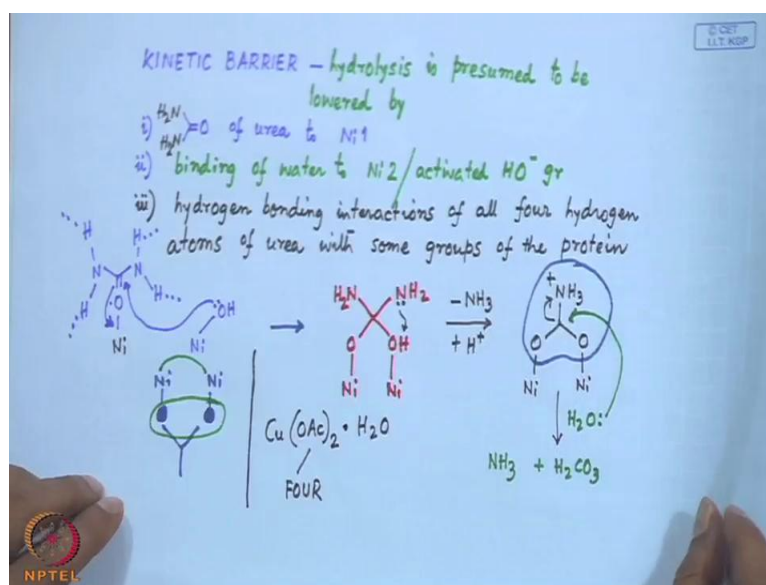 © CET
I.I.T. KGP
KINETIC BARRIER – hydrolysis is presumed to be
lowered by
i) H2N H2N >=O of urea to Ni1
ii) binding of water to Ni2 / activated HO⁻ gr
iii) hydrogen bonding interactions of all four hydrogen
atoms of urea with some groups of the protein
H H
N N
H H
:O: :OH
Ni Ni
→
H2N NH2
O OH
Ni Ni
–NH3
+ H⁺
+
NH3
O O
Ni Ni
H2O:
NH3 + H2CO3
Ni Ni
Cu(OAc)2 · H2O
FOUR
NPTEL